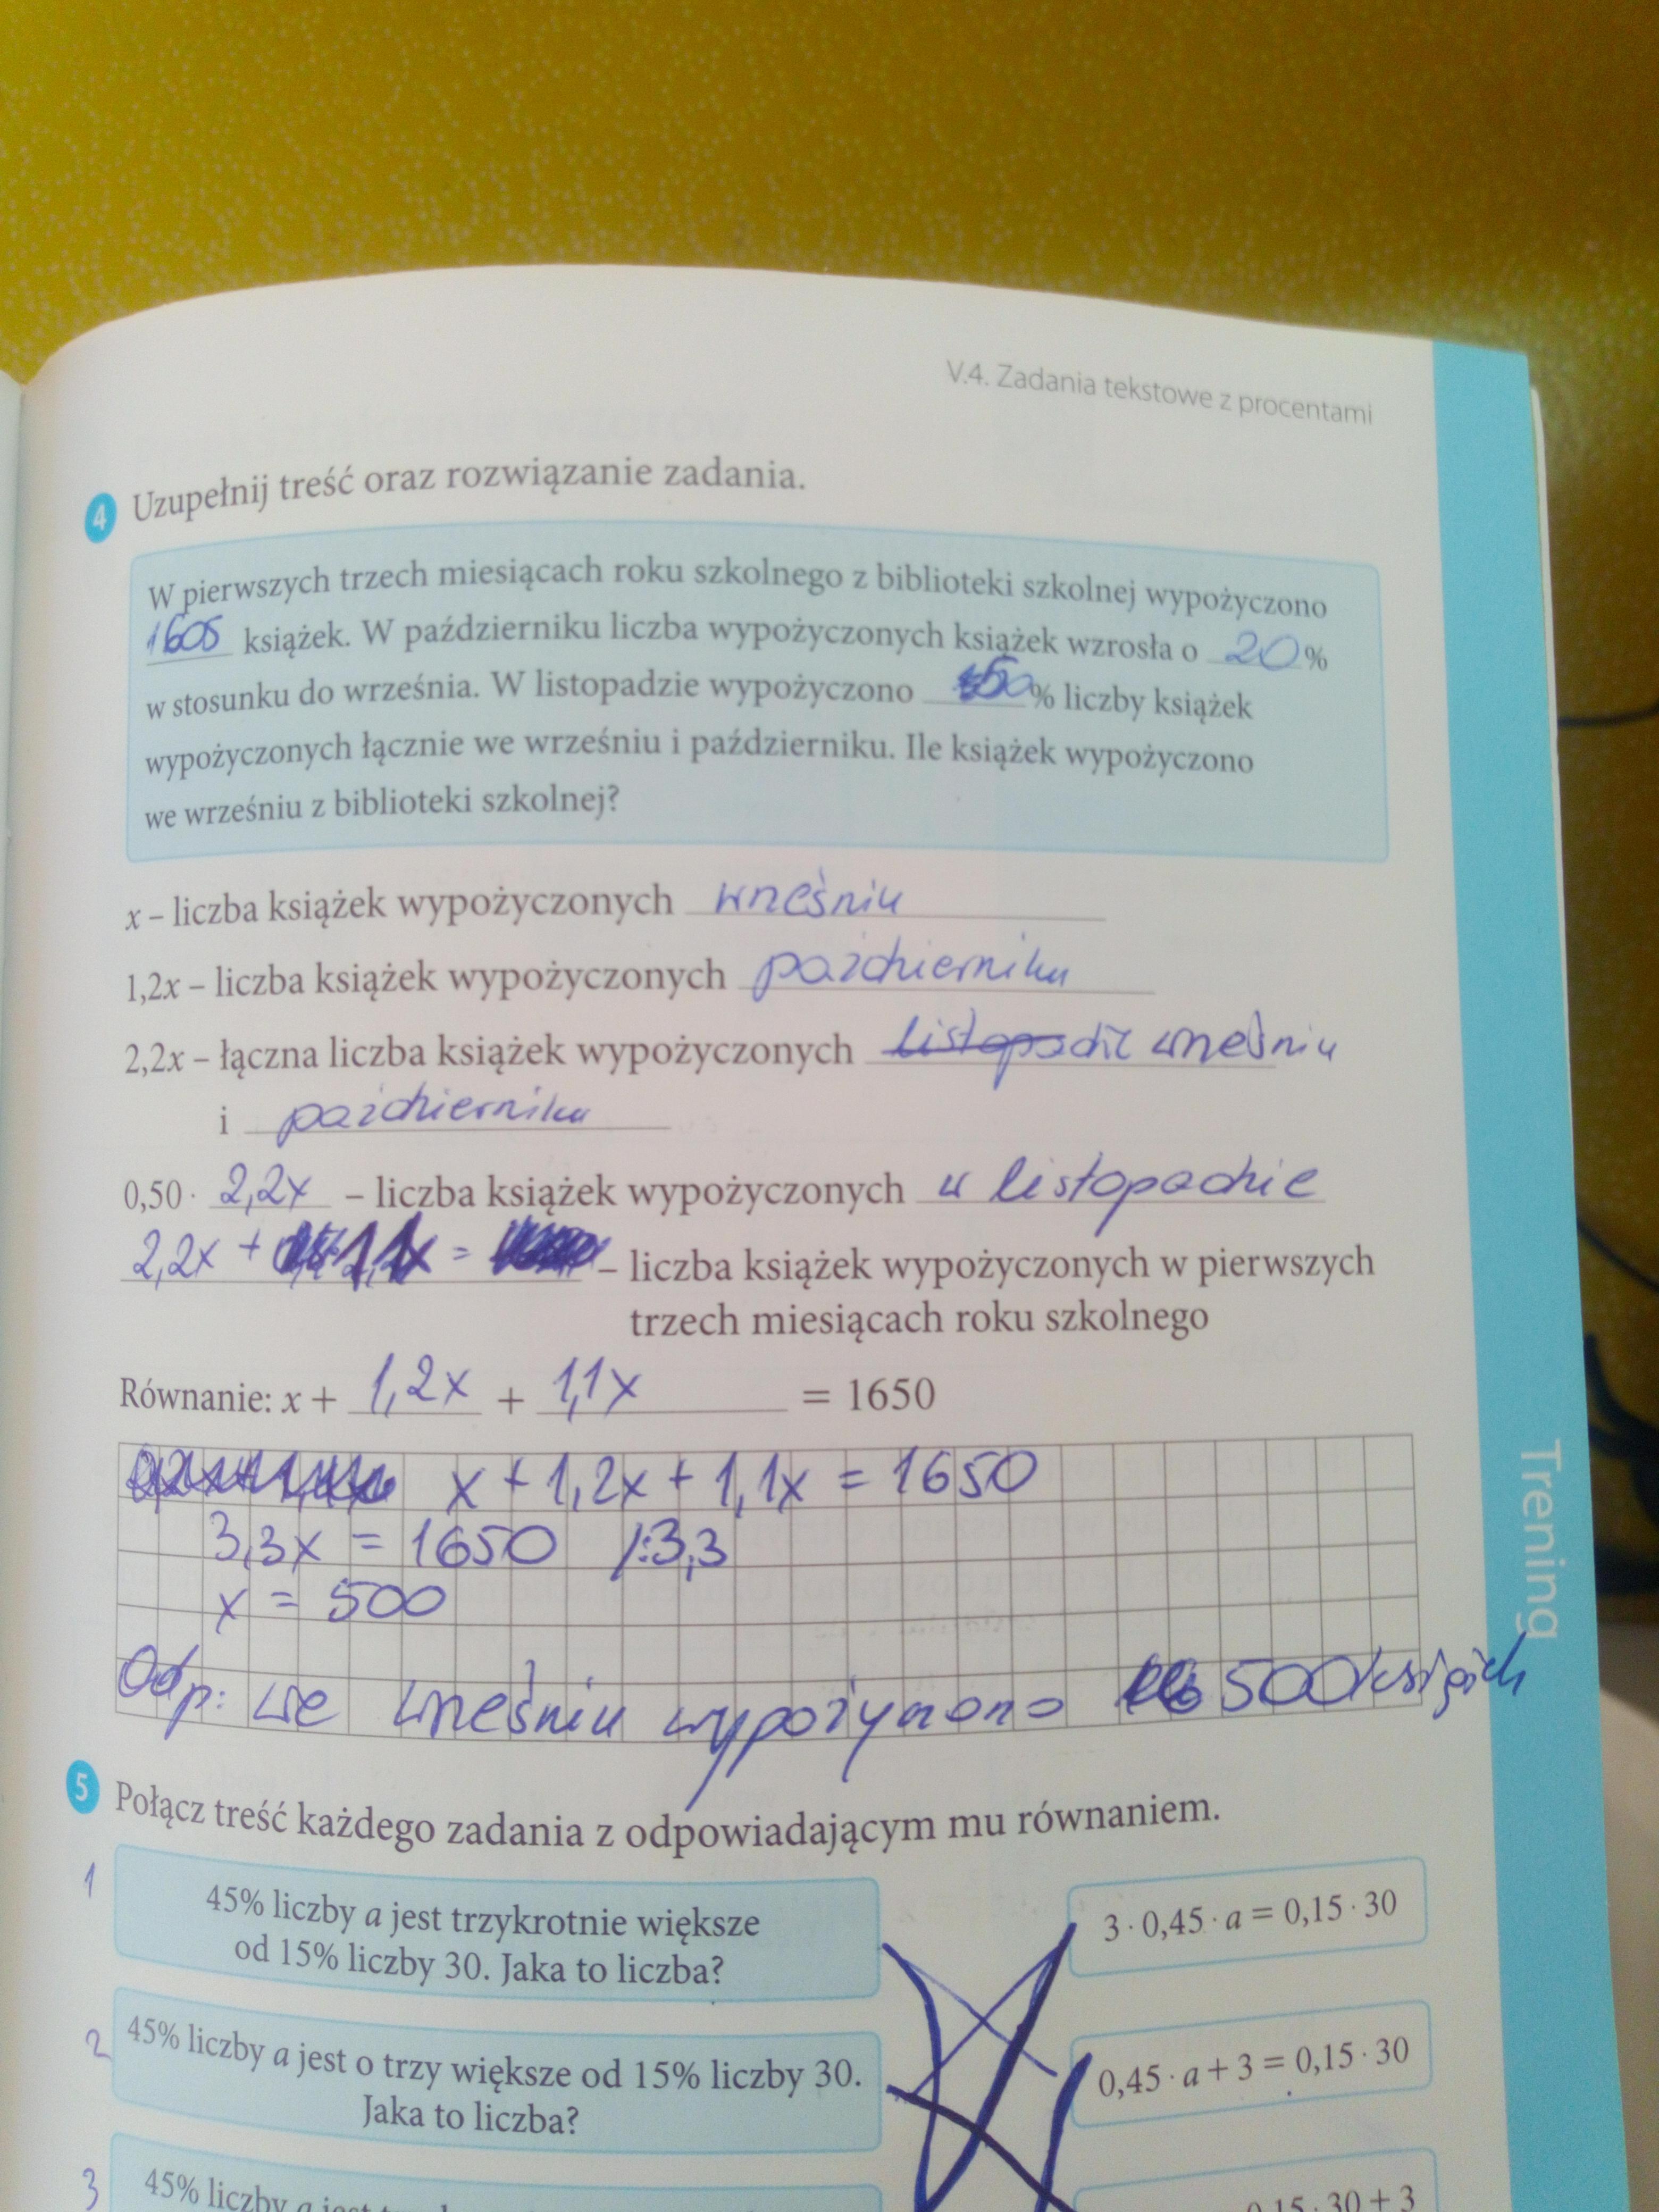 V.4. Zadania tekstowe z procentami
4 Uzupełnij treść oraz rozwiązanie zadania.
W pierwszych trzech miesiącach roku szkolnego z biblioteki szkolnej wypożyczono
1605 książek. W październiku liczba wypożyczonych książek wzrosła o 20 %
w stosunku do września. W listopadzie wypożyczono 50 % liczby książek
wypożyczonych łącznie we wrześniu i październiku. Ile książek wypożyczono
we wrześniu z biblioteki szkolnej?
x – liczba książek wypożyczonych wrześniu
1,2x – liczba książek wypożyczonych październiku
2,2x – łączna liczba książek wypożyczonych listopadzie wrześniu
i październiku
0,50 · 2,2x – liczba książek wypożyczonych w listopadzie
2,2x + 1,1x = – liczba książek wypożyczonych w pierwszych
trzech miesiącach roku szkolnego
Równanie: x + 1,2x + 1,1x = 1650
x + 1,2x + 1,1x = 1650
3,3x = 1650 /:3,3
x = 500
Odp: We wrześniu wypożyczono 500
Trening
5 Połącz treść każdego zadania z odpowiadającym mu równaniem.
1 45% liczby a jest trzykrotnie większe
od 15% liczby 30. Jaka to liczba?
3 · 0,45 · a = 0,15 · 30
2 45% liczby a jest o trzy większe od 15% liczby 30.
Jaka to liczba?
0,45 · a + 3 = 0,15 · 30
3 45% liczby a jest
0,15 · 30 + 3